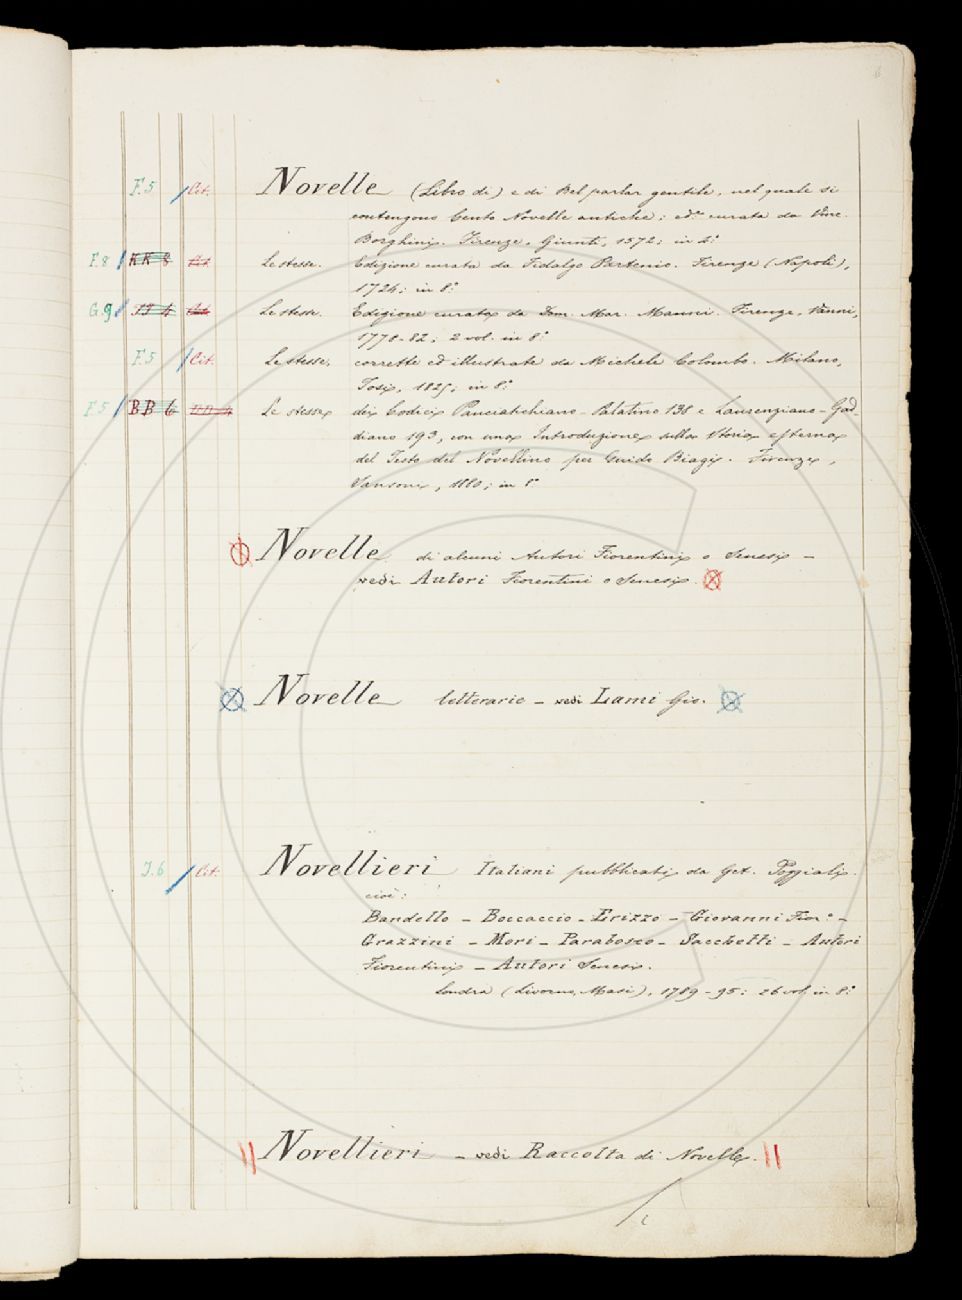 F.5 Cit. Novelle (Libro di) e di Bel parlar gentile, nel quale si
contengono Cento Novelle antiche; ed.ne curata da Vinc.
Borghini. Firenze, Giunti, 1572; in 4.°
F.8 KK 8 Cit Le stesse. Edizione curata da Fidalgo Partenio. Firenze (Napoli),
1724; in 8.°
G.9 Cit Le stesse. Edizione curata da Dom. Mar. Manni. Firenze, Vanni,
1778-82; 2 vol. in 8.°
F.5 Cit. Le stesse, corrette ed illustrate da Michele Colombo. Milano,
Tosi, 1825; in 8.°
F.5 BB 6 Le stesse dei Codici Panciatichiano-Palatino 138 e Laurenziano-Gad-
diano 193, con una Introduzione sulla Storia esterna
del Testo del Novellino per Guido Biagi. Firenze,
Sansoni, 1880; in 8°
Novelle di alcuni Autori Fiorentini o Senesi –
vedi Autori Fiorentini o Senesi.
Novelle letterarie – vedi Lami Gio.
J.6 Cit. Novellieri Italiani pubblicati da Get. Poggiali.
cioè:
Bandello – Boccaccio – Erizzo – Giovanni Fior.° –
Grazzini – Mori – Parabosco – Sacchetti – Autori
Fiorentini – Autori Senesi.
Londra (Livorno, Masi), 1789-95; 26 vol. in 8.°
Novellieri – vedi Raccolta di Novelle.